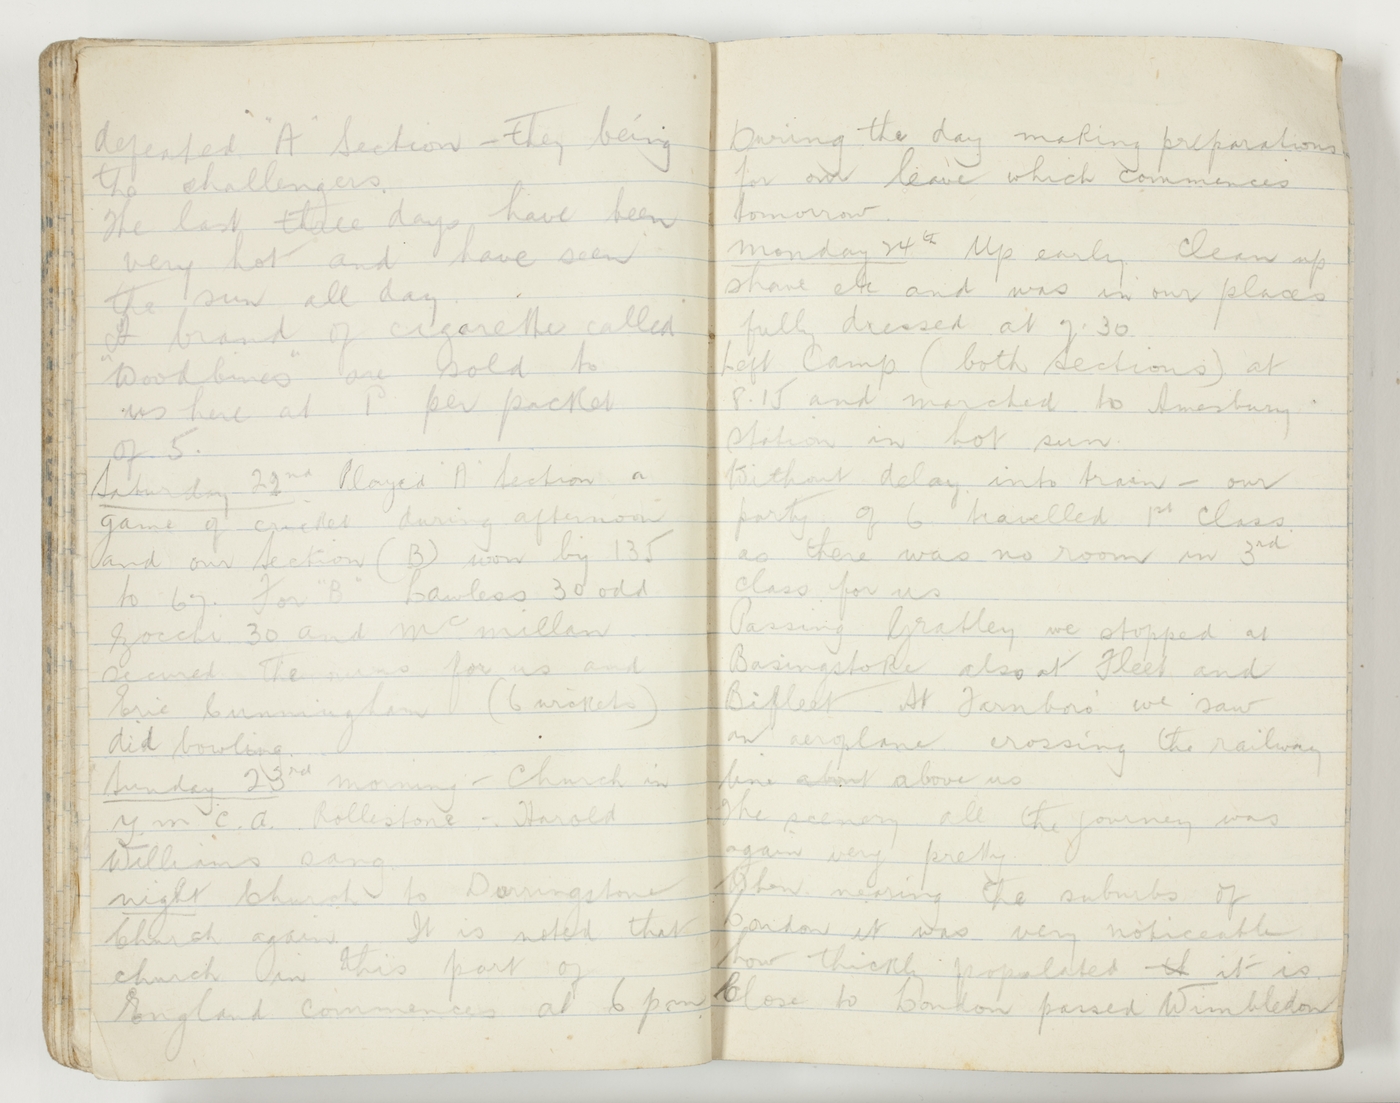 defeated "A" Section – they being
the challengers.
The last three days have been
very hot and have seen
the sun all day.
A brand of cigarette called
"Woodbines" are sold to
us here at 1d per packet
of 5.
Saturday 22nd Played "A" Section a
game of cricket during afternoon
and our Section (B) won by 135
to 67. For "B" Lawless 30 odd
Zocchi 30 and McMillan
secured the runs for us and
Eric Cunningham (6 wickets)
did bowling.
Sunday 23rd morning – Church in
Y.M.C.A. Rollestone – Harold
Williams sang
night Church to Durringstone
Church again. It is noted that
church in this part of
England commences at 6 pm.
During the day making preparations
for our leave which commences
tomorrow.
Monday 24th Up early Clean up
shave etc and was in our places
fully dressed at 7.30
Left Camp (both sections) at
8.15 and marched to Amesbury
Station in hot sun.
Without delay into train – our
party of 6 travelled 1st Class
as there was no room in 3rd
class for us
Passing Grateley we stopped at
Basingstoke also at Fleet and
Bifleet. At Farnboro' we saw
an aeroplane crossing the railway
line about above us
The scenery all the journey was
again very pretty.
When nearing the suburbs of
London it was very noticeable
how thickly populated it is.
Close to London passed Wimbledon